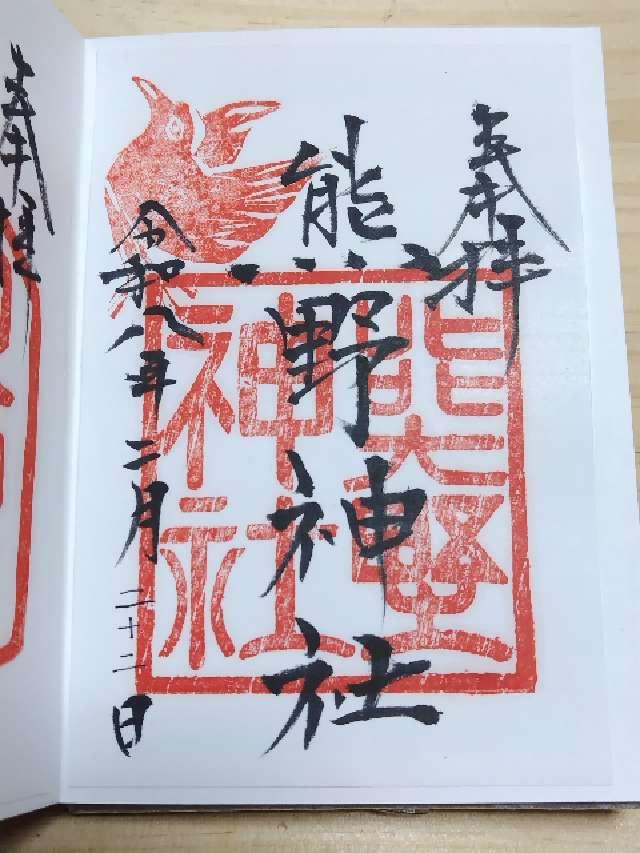 奉拝
熊野神社
令和八年二月二十二日
熊野
神社
奉拝